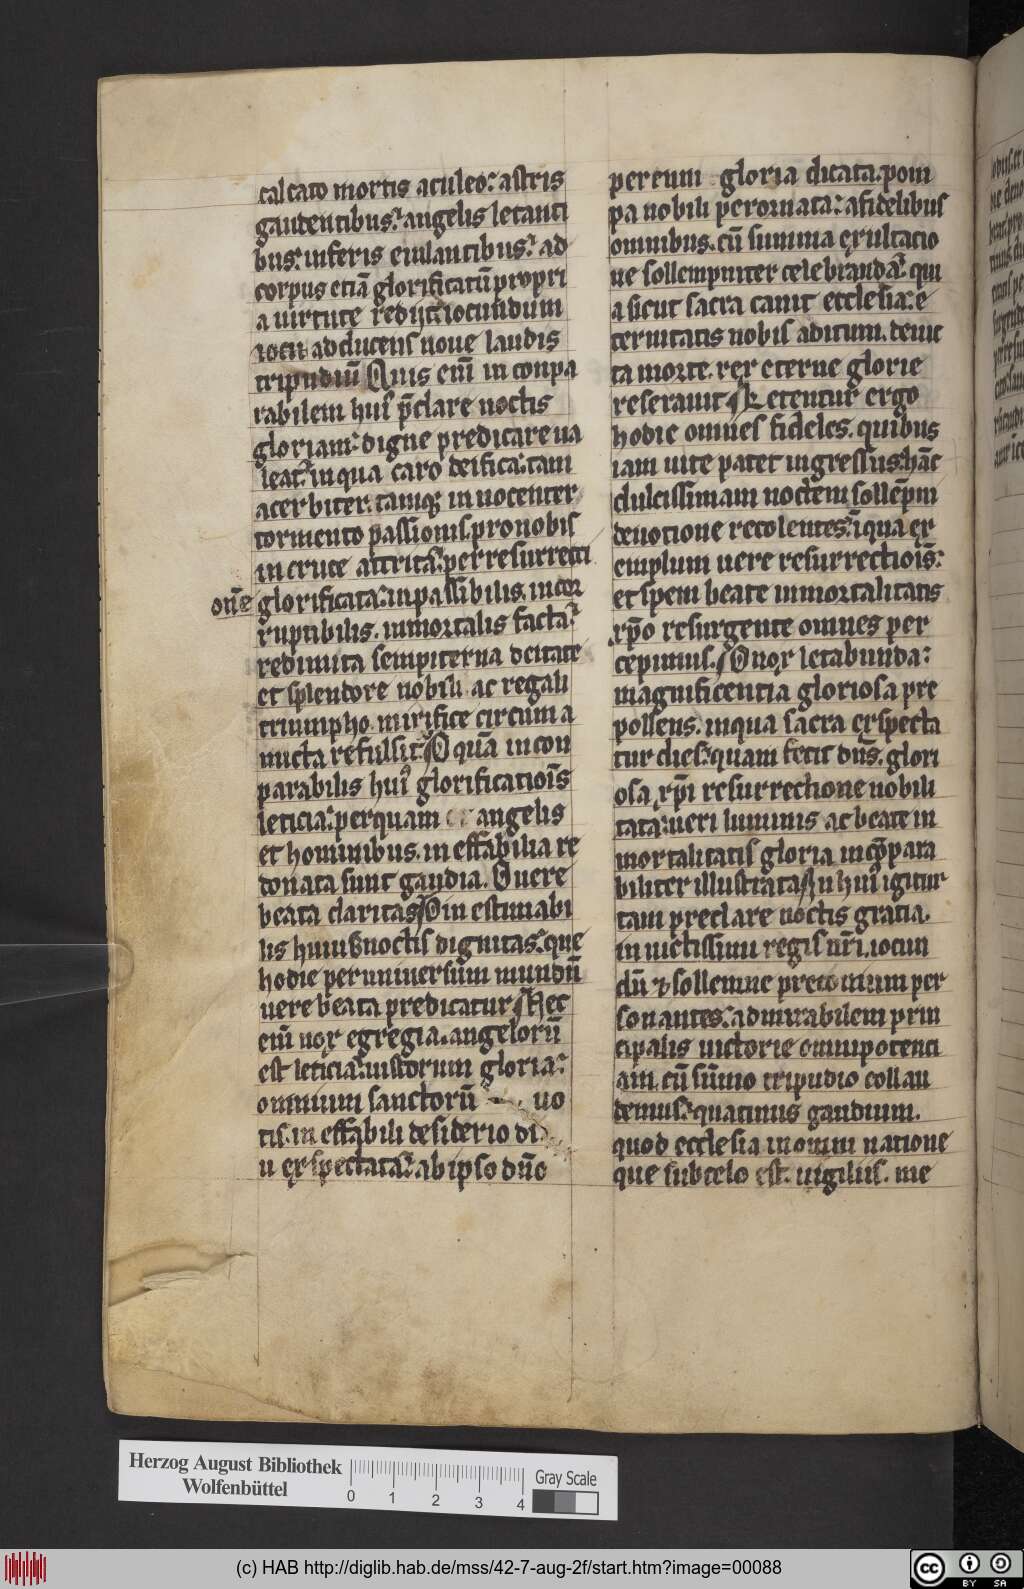 calcato mortis aculeo: astris
gaudentibus: angelis letanti
bus: inferis eiulantibus: ad
corpus etiā glorificatū propri
a uirtute redijt: iocundum
iocu adducens noue laudis
tripudiū Quis eni in conpa
rabilem huiꝰ p̄clare noctis
gloriam: digne predicare ua
leat: in qua caro deifica: tam
acerbiter. tamqꝫ innocenter
tormento passionis. pro nobis
in cruce attrita: per resurrecti
one glorificata: inpassibilis. incor
ruptibilis. inmortalis facta:
redimita sempiterna deitate
et splendore nobili ac regali
triumpho. mirifice circum a
micta refulsit. O quā incon
parabilis huiꝰ glorificatiōis
leticia: per quam angelis
et hominibus. in effabilia re
donata sunt gaudia. O uere
beata claritas O in estimabi
lis huius noctis dignitas: que
hodie per uniuersum mundū
uere beata predicatur Hec
eni nox egregia. angelorū
est leticia: iustorum gloria:
omnium sanctorū uo
tis. in effabili desiderio di
u exspectata: ab ipso dn̄o
per eum gloria dicata. pom
pa nobili perornata: a fidelibus
omnibus. cū summa exultacio
ne sollempniter celebranda: qui
a sicut sacra canit ecclesia: e
ternitatis nobis aditum. deuic
ta morte. rex eterne glorie
reserauit Letentur ergo
hodie omnes fideles. quibus
iam uite patet ingressus: hāc
dulcissimam noctem sollēpni
deuotione recolentes: ī qua ex
emplum uere resurrectiōis:
et spem beate inmortalitatis
xp̄o resurgente omnes per
cepimus. O nox letabunda:
magnificentia gloriosa pre
pollens. in qua sacra exspecta
tur dies: quam fecit dn̄s. glori
osa xp̄i resurrectione nobili
tata: ueri luminis ac beate in
mortalitatis gloria incōpara
biliter illustrata In huiꝰ igitur
tam preclare noctis gratia.
in uictissimi regis nr̄i. iocun
dū ⁊ sollemne preconium per
sonantes: admirabilem prin
cipalis uictorie omnipotenci
am. cū sūmo tripudio collau
demus: quatinus gaudium.
quod ecclesia in omni natione
que sub celo est. uigiliis. me
Herzog August Bibliothek
Wolfenbüttel
0 1 2 3 4
Gray Scale
(c) HAB http://diglib.hab.de/mss/42-7-aug-2f/start.htm?image=00088
cc BY SA